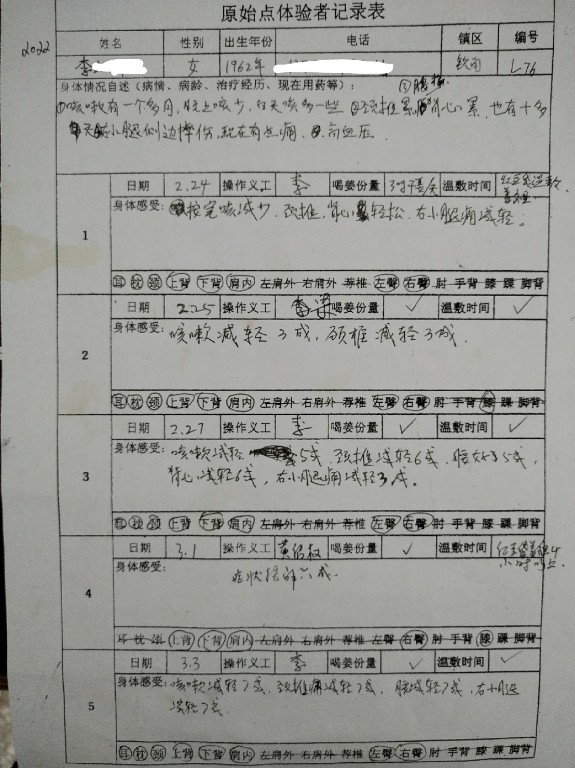 原始点体验者记录表
2022
姓名 性别 出生年份 电话 镇区 编号
李 女 1962年 L-76
身体情况自述（病情、病龄、治疗经历、现在用药等）：
①咳嗽有一个多月，晚上咳少，白天咳多一些 ②颈椎累 背心累，也有十多
天 小腿侧边摔伤，现在有点痛
日期 2.24 操作义工 李 喝姜份量 温敷时间
1
身体感受： 按完咳减少、颈椎、背心轻松、右小腿痛减轻。
耳 枕 颈 上背 下背 肩内 左肩外 右肩外 荐椎 左臀 右臀 肘 手背 膝 踝 脚背
日期 2.25 操作义工 喝姜份量 ✓ 温敷时间 ✓
2
身体感受： 咳嗽减轻3成，颈椎减轻3成.
耳 枕 颈 上背 下背 肩内 左肩外 右肩外 荐椎 左臀 右臀 肘 手背 膝 踝 脚背
日期 2.27 操作义工 李 喝姜份量 ✓ 温敷时间 ✓
3
身体感受： 咳嗽减轻 5成、颈椎减轻6成、 5成，
背心减轻6成，右小腿痛减轻3成。
耳 枕 颈 上背 下背 肩内 左肩外 右肩外 荐椎 左臀 右臀 肘 手背 膝 踝 脚背
日期 3.1 操作义工 喝姜份量 ✓ 温敷时间
4
身体感受：
症状 六成.
耳 枕 颈 上背 下背 肩内 左肩外 右肩外 荐椎 左臀 右臀 肘 手背 膝 踝 脚背
日期 3.3 操作义工 李 喝姜份量 ✓ 温敷时间 ✓
5
身体感受： 咳嗽减轻7成、颈椎痛减轻7成、 减轻7成，右小腿
减轻7成
耳 枕 颈 上背 下背 肩内 左肩外 右肩外 荐椎 左臀 右臀 肘 手背 膝 踝 脚背